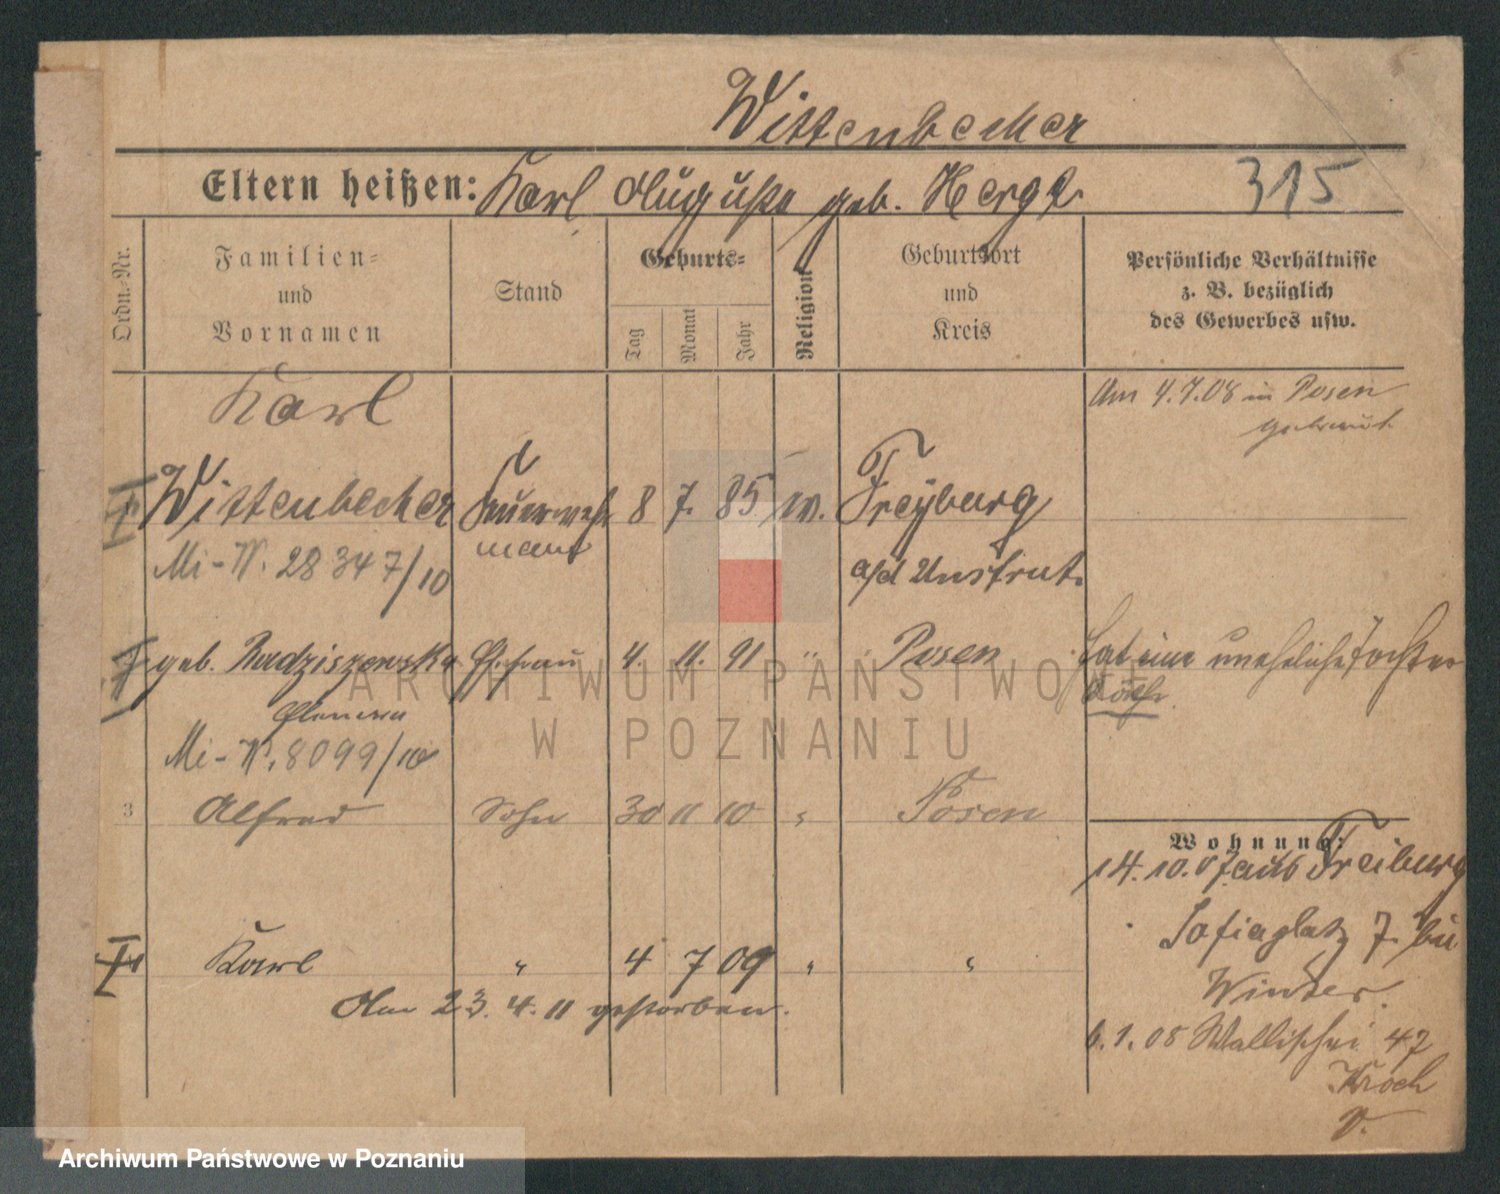 Wittenbecher
Eltern heißen: Karl Auguste geb. Herge
315
Ordn.-Nr.
Familien-
und
Vornamen
Stand
Geburts-
Tag
Monat
Jahr
Religion
Geburtsort
und
Kreis
Persönliche Verhältnisse
z. B. bezüglich
des Gewerbes usw.
Karl
Am 4.7.08 in Posen
getraut
Wittenbecher Feuerwehr 8 7. 85 Freyburg
mann
Mi-N. 28347/10
a/d Unstrut.
geb. Radziszewska Ehefrau 4. 11. 91 " Posen
Hat eine uneheliche Tochter
Mi-N. 8099/10
3 Alfred Sohn 30 11 10 " Posen
Wohnung:
14.10.07 aus Freiburg
Sofiaplatz 7. bei
Winter.
Karl " 4 7 09 " "
Am 23. 4. 11 gestorben.
6.1.08 Wallischei 47
Kroch
V.
ARCHIWUM PAŃSTWOWE
W POZNANIU
Archiwum Państwowe w Poznaniu